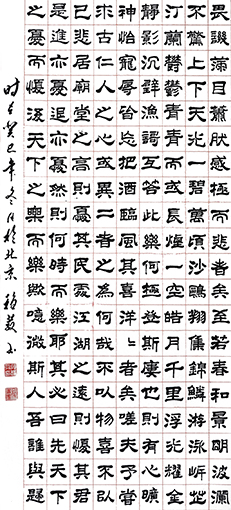 畏譏滿目蕭然感極而悲者矣至若春和景明波瀾
不驚上下天光一碧萬頃沙鷗翔集錦鱗游泳岸芷
汀蘭鬱鬱青青而或長煙一空皓月千里浮光耀金
靜影沉璧漁歌互答此樂何極登斯樓也則有心曠
神怡寵辱皆忘把酒臨風其喜洋〻者矣嗟夫予嘗
求古仁人之心或異二者之為何哉不以物喜不以
己悲居廟堂之高則憂其民處江湖之遠則憂其君
是進亦憂退亦憂然則何時而樂耶其必曰先天下
之憂而憂後天下之樂而樂歟噫微斯人吾誰與歸
時在癸巳年冬月於北京